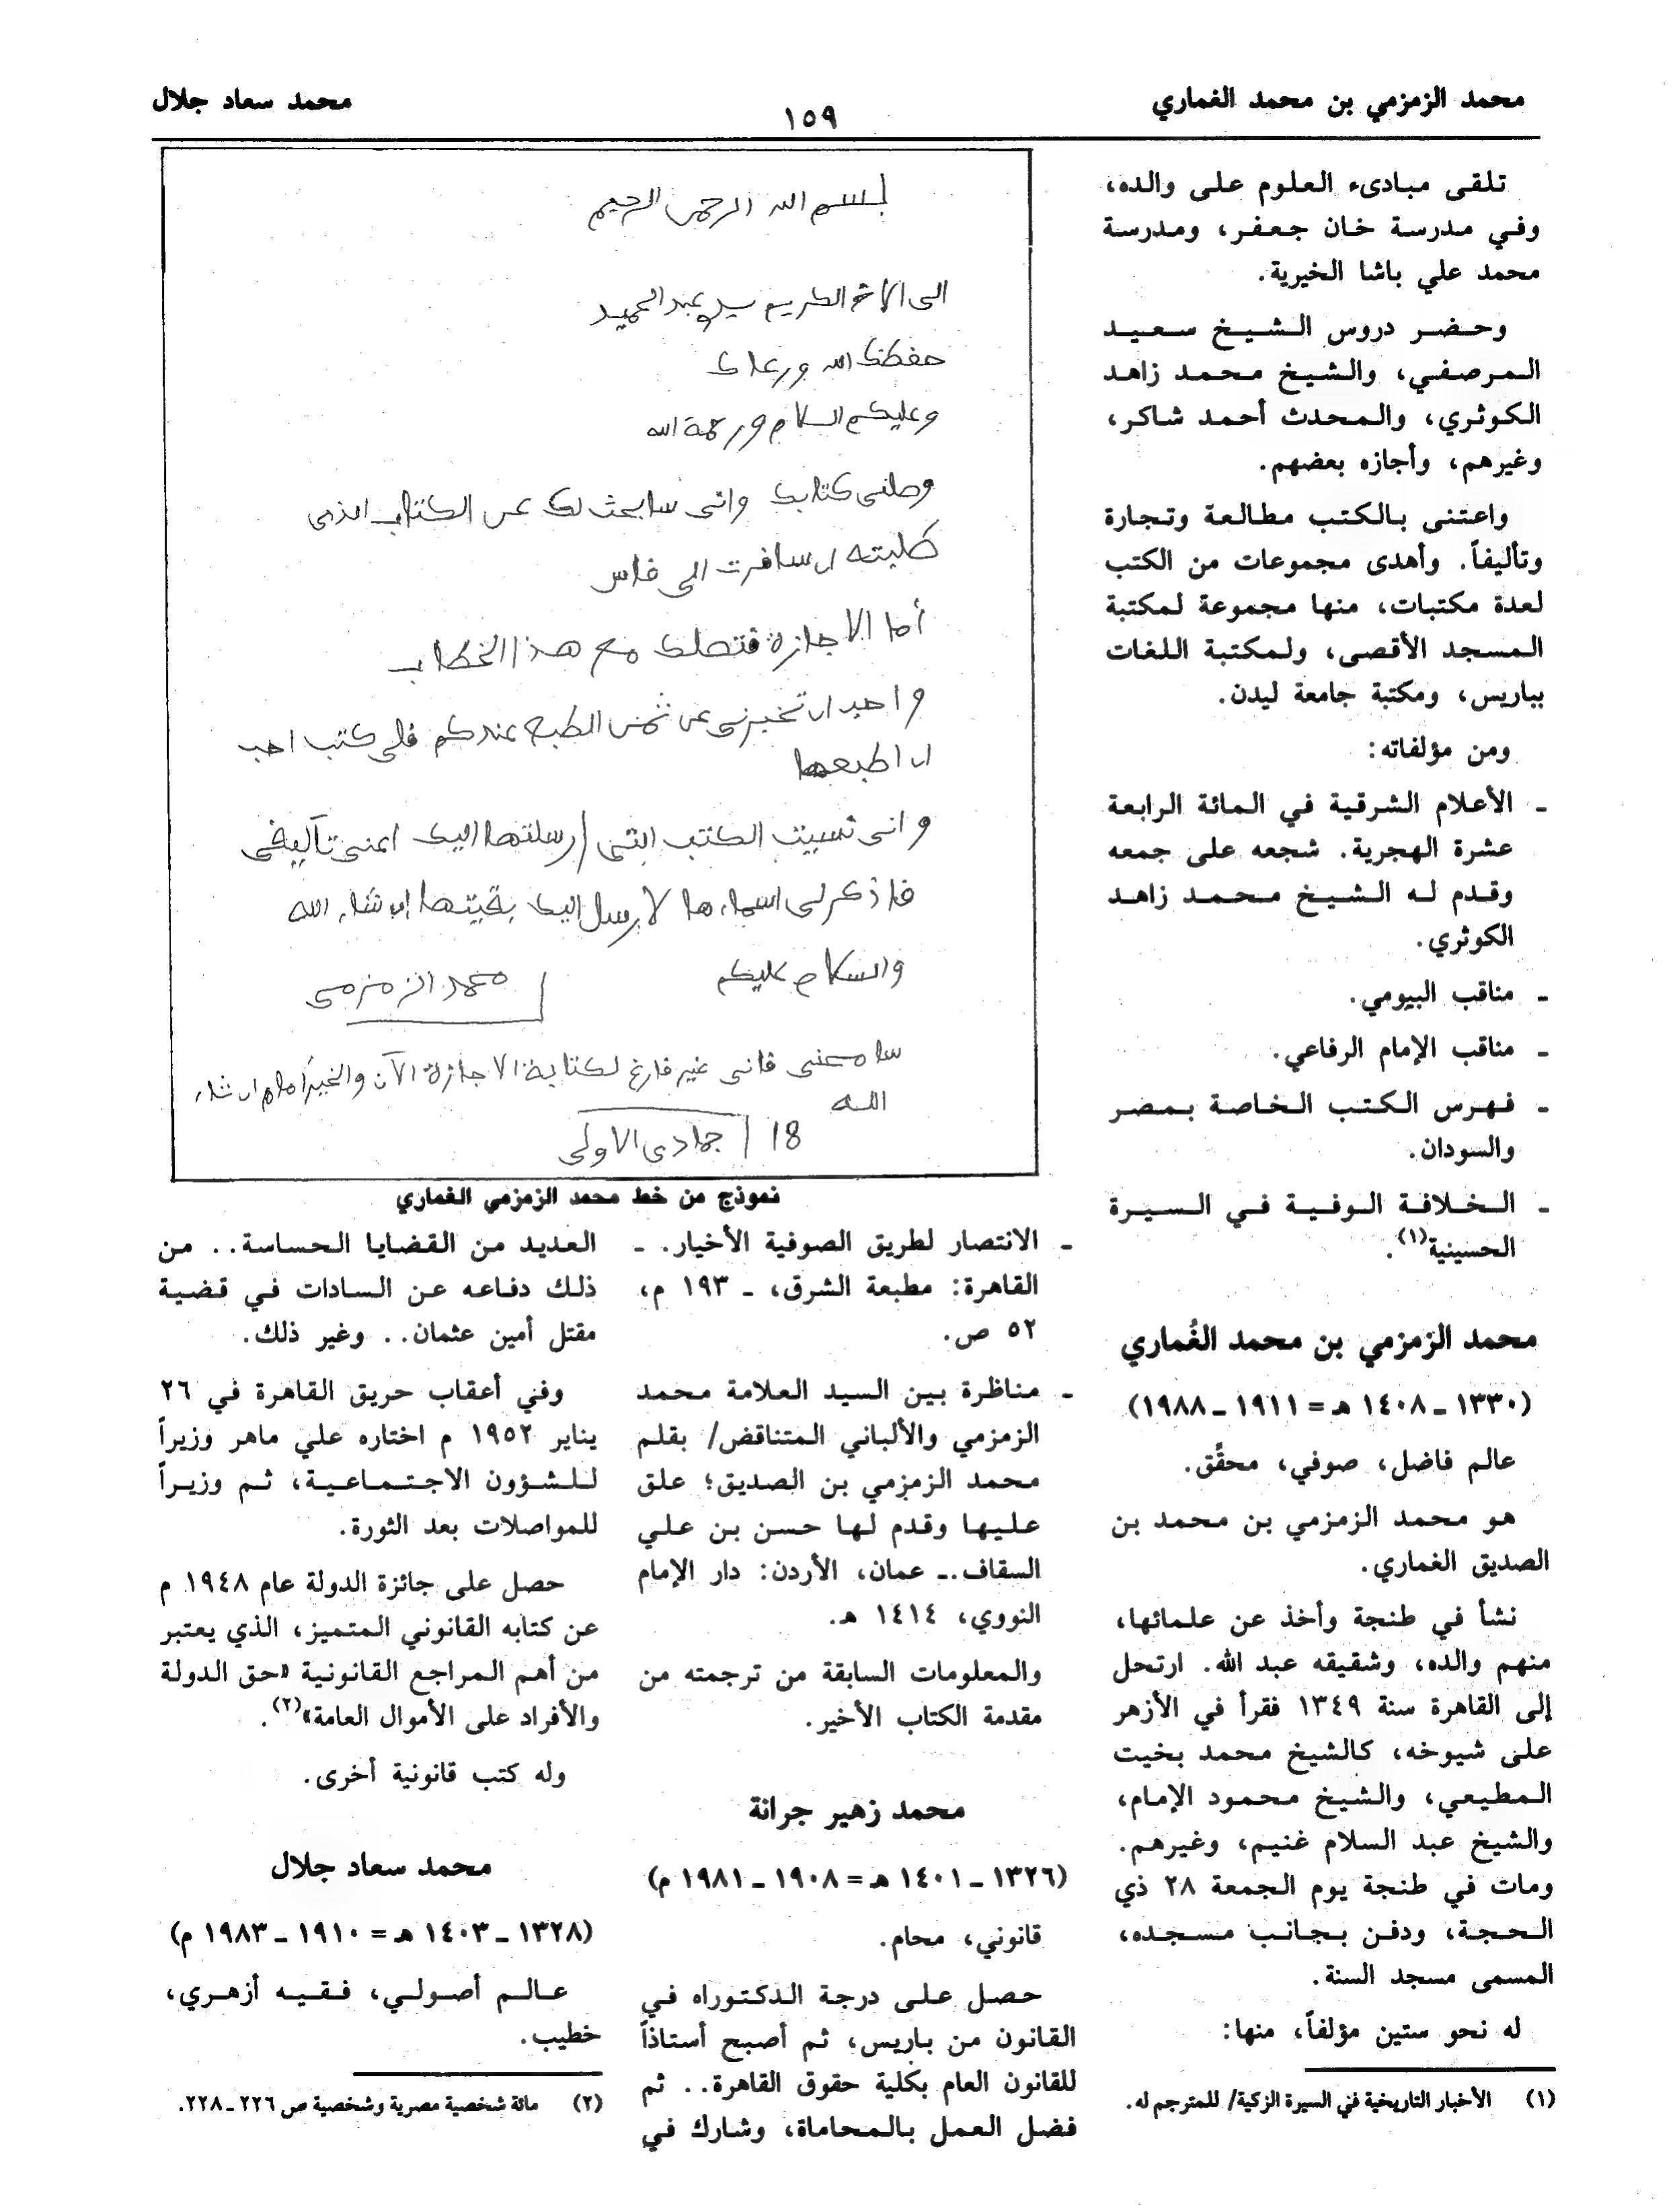 محمد الزمزمي بن محمد الغماري
١٥٩
محمد سعاد جلال
تلقى مبادىء العلوم على والده،
وفي مدرسة خان جعفر، ومدرسة
محمد علي باشا الخيرية.
وحضر دروس الشيخ سعيد
المرصفي، والشيخ محمد زاهد
الكوثري، والمحدث أحمد شاكر،
وغيرهم، وأجازه بعضهم.
واعتنى بالكتب مطالعة وتجارة
وتأليفاً. وأهدى مجموعات من الكتب
لعدة مكتبات، منها مجموعة لمكتبة
المسجد الأقصى، ولمكتبة اللغات
بباريس، ومكتبة جامعة ليدن.
ومن مؤلفاته:
ـ الأعلام الشرقية في المائة الرابعة
عشرة الهجرية. شجعه على جمعه
وقدم له الشيخ محمد زاهد
الكوثري.
ـ مناقب البيومي.
ـ مناقب الإمام الرفاعي.
ـ فهرس الكتب الخاصة بمصر
والسودان.
ـ الخلافة الوفية في السيرة
الحسينية(١).
محمد الزمزمي بن محمد الغُماري
(١٣٣٠ ـ ١٤٠٨ هـ = ١٩١١ ـ ١٩٨٨)
عالم فاضل، صوفي، محقَّق.
هو محمد الزمزمي بن محمد بن
الصديق الغماري.
نشأ في طنجة وأخذ عن علمائها،
منهم والده، وشقيقه عبد الله. ارتحل
إلى القاهرة سنة ١٣٤٩ فقرأ في الأزهر
على شيوخه، كالشيخ محمد بخيت
المطيعي، والشيخ محمود الإمام،
والشيخ عبد السلام غنيم، وغيرهم.
ومات في طنجة يوم الجمعة ٢٨ ذي
الحجة، ودفن بجانب مسجده،
المسمى مسجد السنة.
له نحو ستين مؤلفاً، منها:
(١) الأخبار التاريخية في السيرة الزكية/ للمترجم له.
بسم الله الرحمن الرحيم
الى الاخ الكريم سيدي عبد الحميد
حفظك الله ورعاك
وعليكم السلام ورحمة الله
وصلني كتابك واني سابحث لك عن الكتاب الذي
طلبته ان سافرت الى فاس
أما الاجازة فتصلك مع هذا الخطاب
واحب ان تخبرني عن ثمن الطبع عندكم فلي كتب احب
ان اطبعها
واني نسيت الكتب التي ارسلتها اليك اعني تآليفي
فاذكر لي اسماءها لارسل اليك بقيتها ان شاء الله
والسلام عليكم
محمد الزمزمي
سامحني فاني غير فارغ لكتابة الاجازة الآن والخير امام ان شاء
الله
18 جمادى الاولى
نموذج من خط محمد الزمزمي الغماري
ـ الانتصار لطريق الصوفية الأخيار. ـ
القاهرة: مطبعة الشرق، ـ ١٩٣ م،
٥٢ ص.
ـ مناظرة بين السيد العلامة محمد
الزمزمي والألباني المتناقض/ بقلم
محمد الزمزمي بن الصديق؛ علق
عليها وقدم لها حسن بن علي
السقاف.ـ عمان، الأردن: دار الإمام
النووي، ١٤١٤ هـ.
والمعلومات السابقة من ترجمته من
مقدمة الكتاب الأخير.
محمد زهير جرانة
(١٣٢٦ ـ ١٤٠١ هـ = ١٩٠٨ ـ ١٩٨١ م)
قانوني، محام.
حصل على درجة الدكتوراه في
القانون من باريس، ثم أصبح أستاذاً
للقانون العام بكلية حقوق القاهرة.. ثم
فضل العمل بالمحاماة، وشارك في
العديد من القضايا الحساسة.. من
ذلك دفاعه عن السادات في قضية
مقتل أمين عثمان.. وغير ذلك.
وفي أعقاب حريق القاهرة في ٢٦
يناير ١٩٥٢ م اختاره علي ماهر وزيراً
للشؤون الاجتماعية، ثم وزيراً
للمواصلات بعد الثورة.
حصل على جائزة الدولة عام ١٩٤٨ م
عن كتابه القانوني المتميز، الذي يعتبر
من أهم المراجع القانونية «حق الدولة
والأفراد على الأموال العامة»(٢).
وله كتب قانونية أخرى.
محمد سعاد جلال
(١٣٢٨ ـ ١٤٠٣ هـ = ١٩١٠ ـ ١٩٨٣ م)
عالم أصولي، فقيه أزهري،
خطيب.
(٢) مائة شخصية مصرية وشخصية ص ٢٢٦ ـ ٢٢٨.